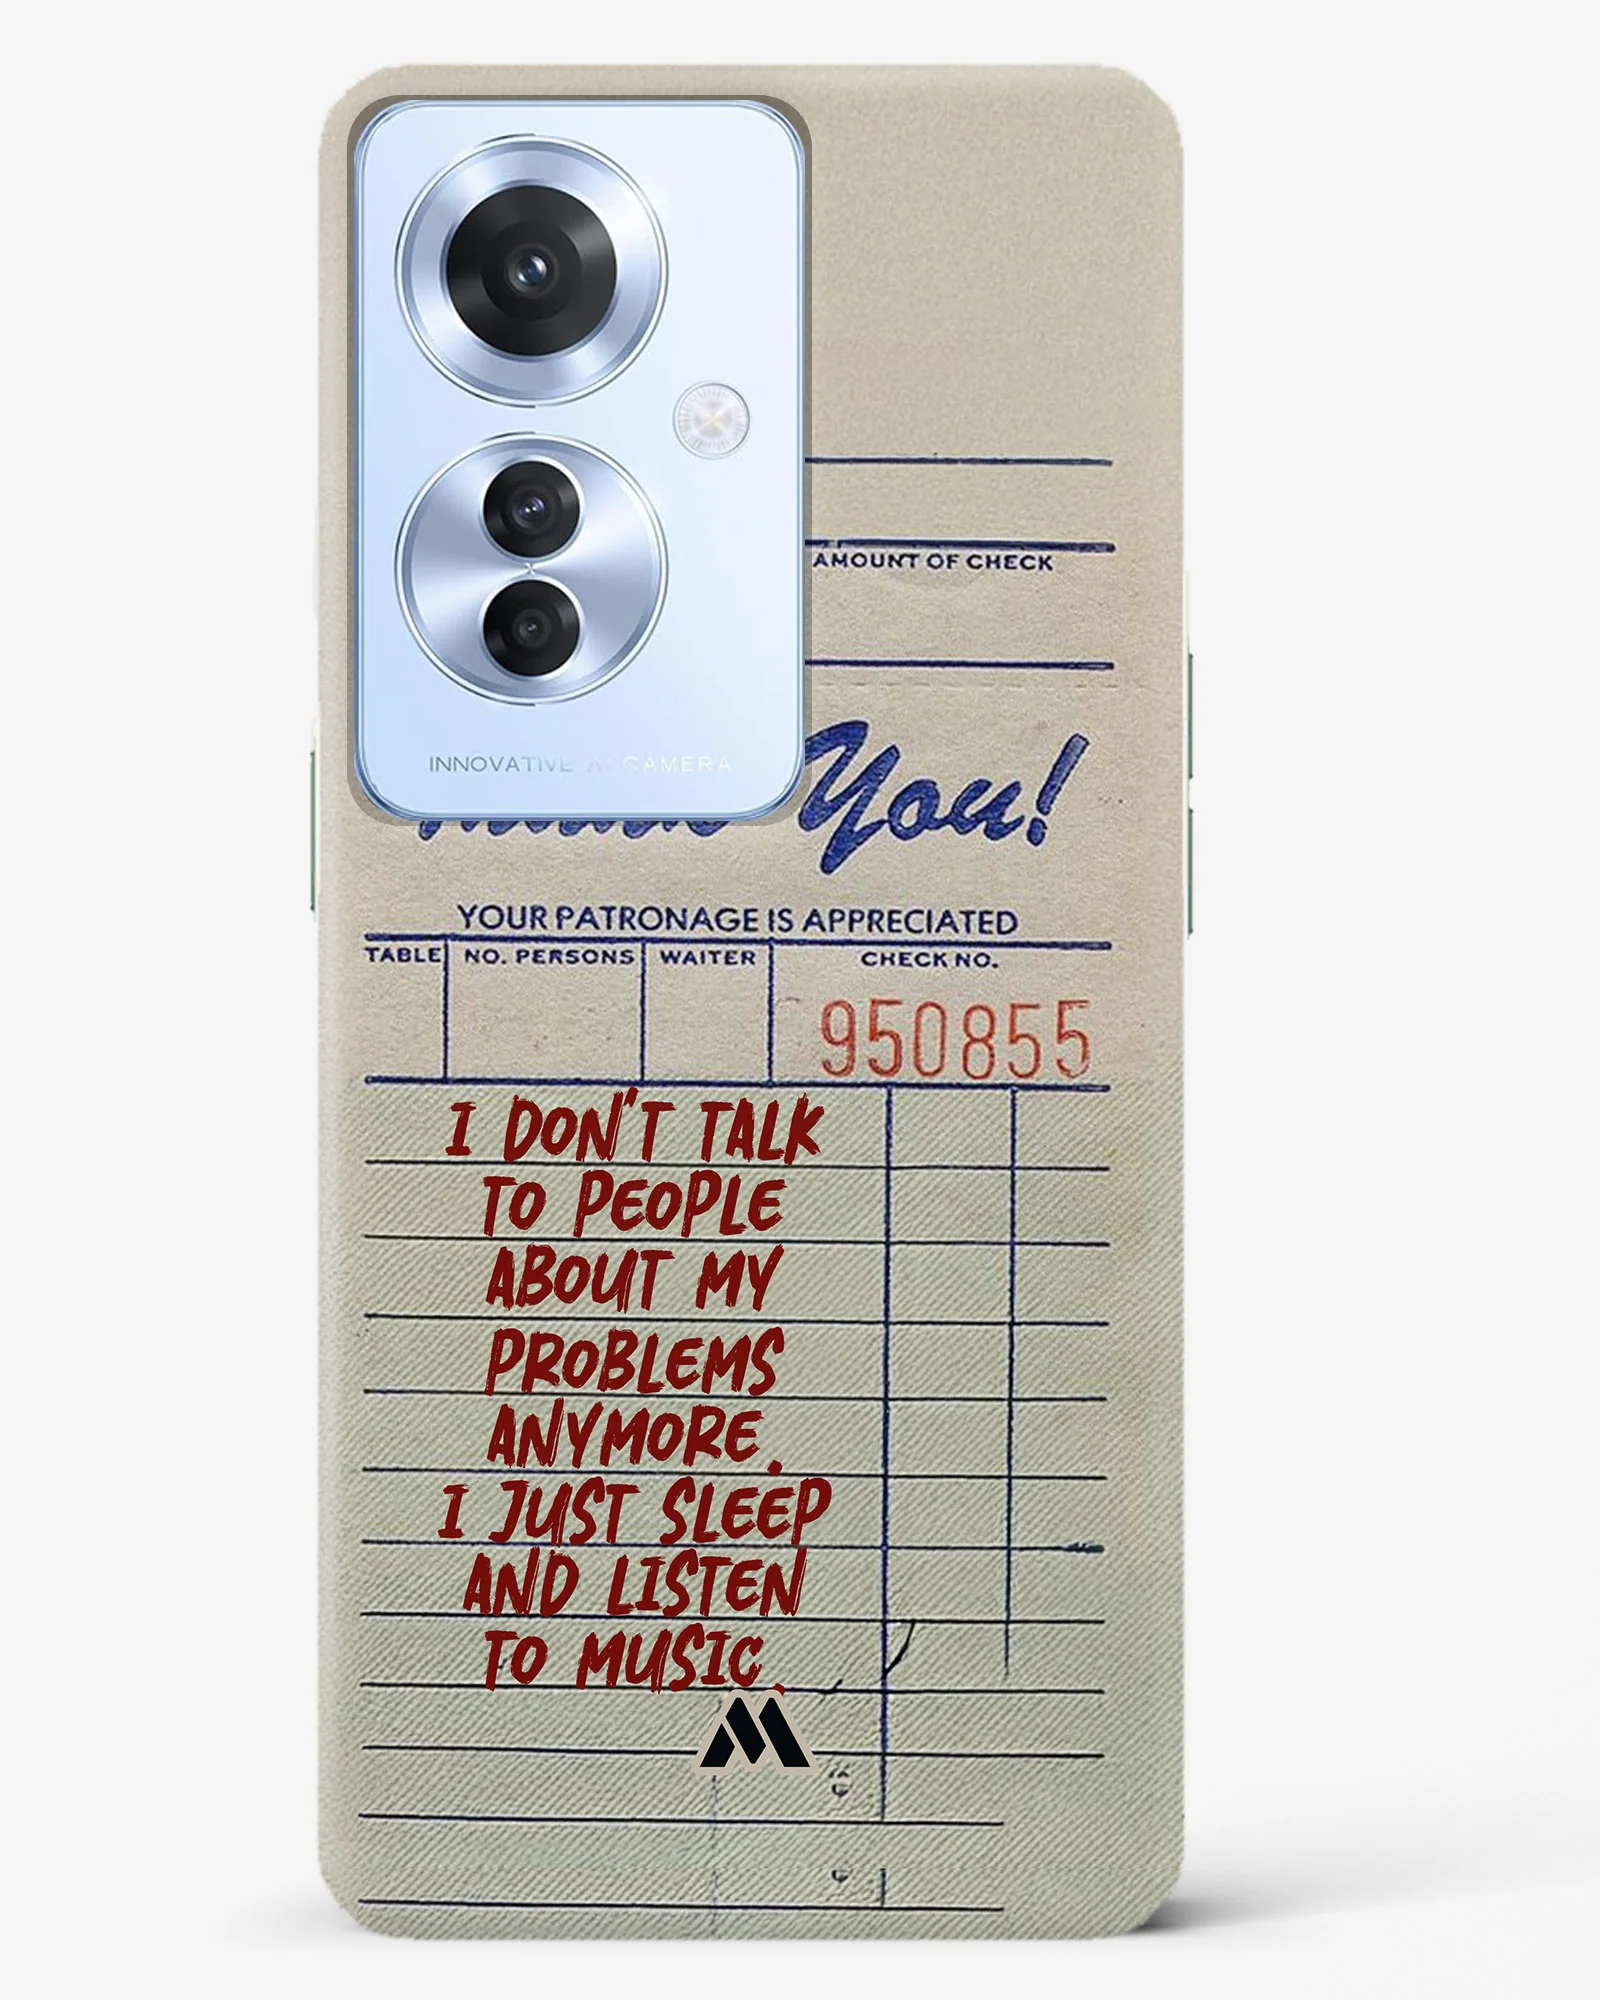 AMOUNT OF CHECK
You!
INNOVATIVE AI CAMERA
YOUR PATRONAGE IS APPRECIATED
TABLE NO. PERSONS WAITER CHECK NO.
950855
I DON'T TALK
TO PEOPLE
ABOUT MY
PROBLEMS
ANYMORE.
I JUST SLEEP
AND LISTEN
TO MUSIC.